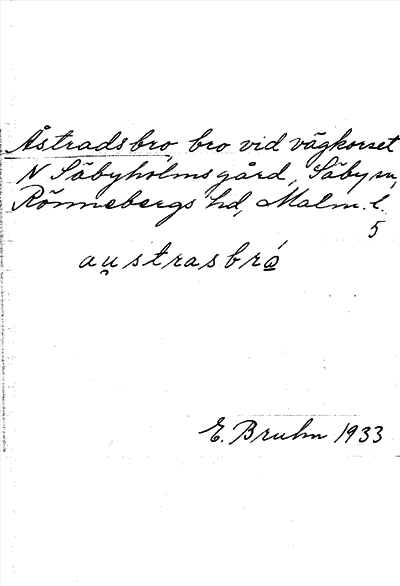 Åstradsbro, bro vid vägkorset
N Säbyholms gård, Säby sn,
Rönnebergs hd, Malm. l.
5
au̯strasbró̲
E. Bruhn 1933